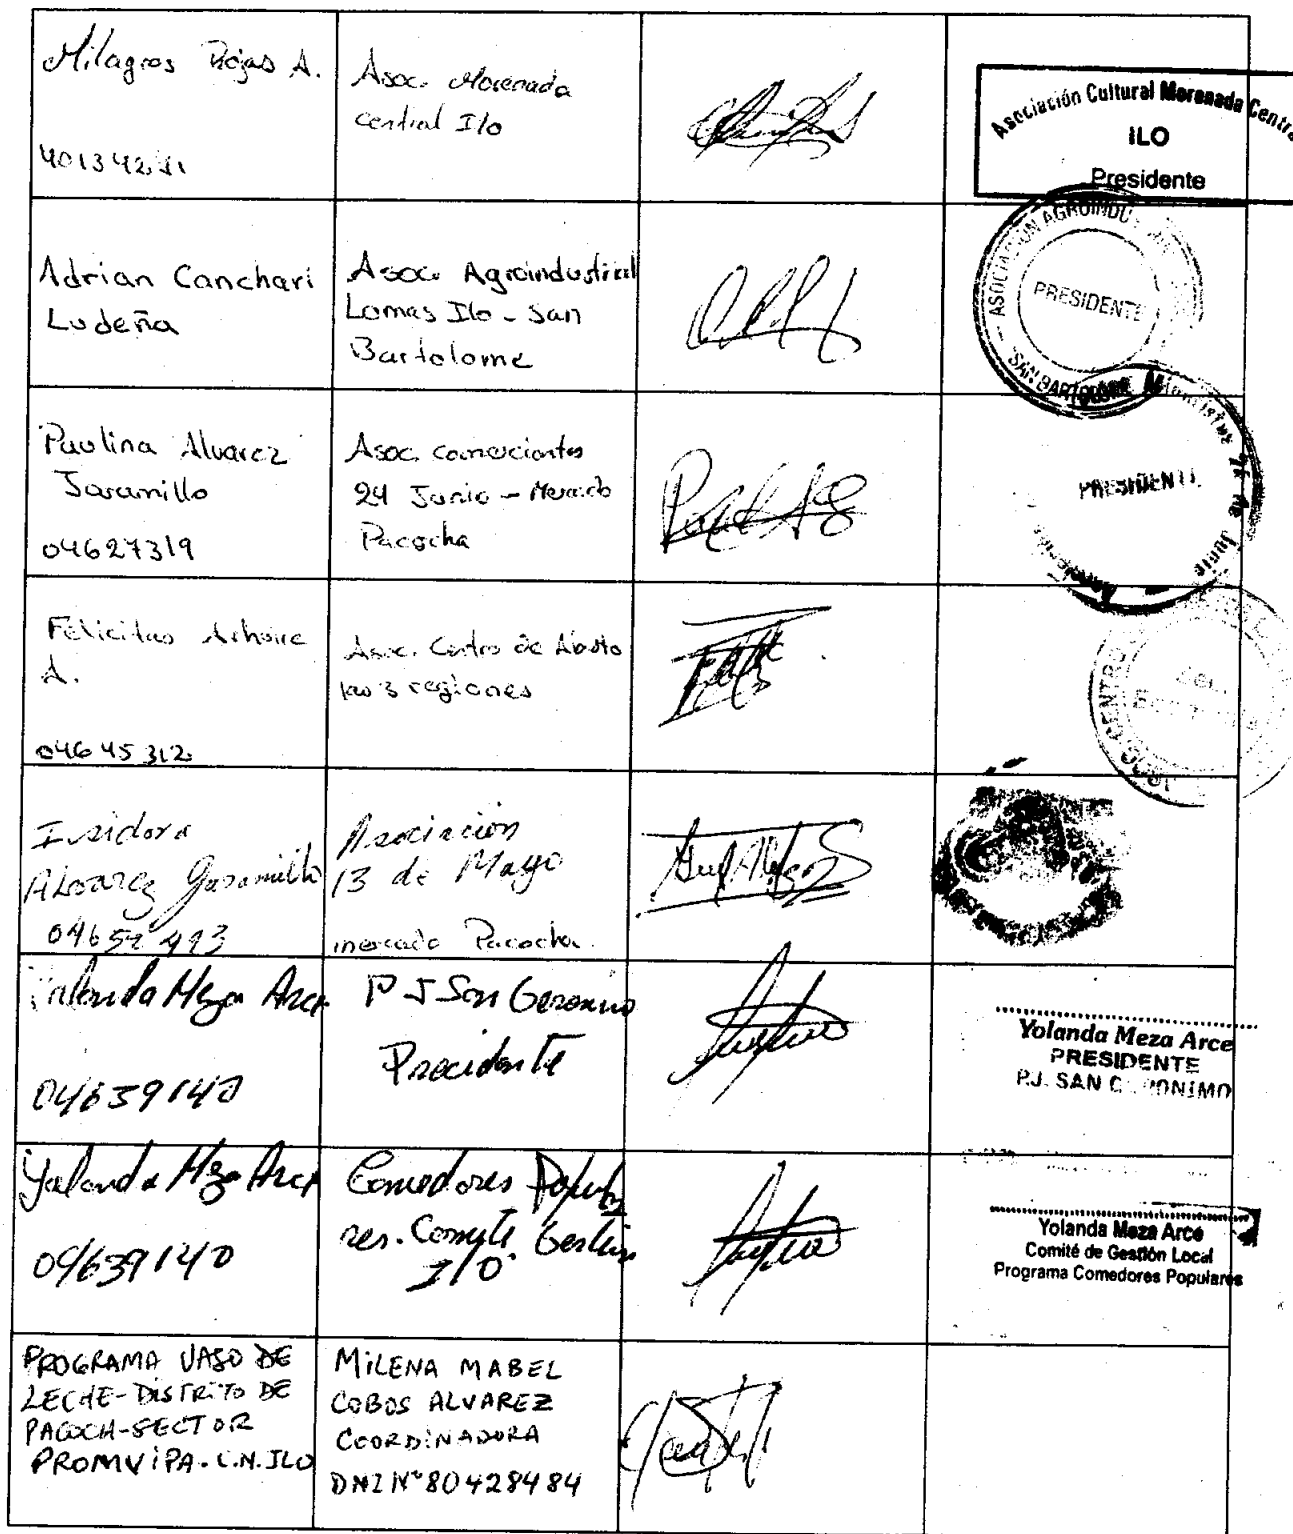 Milagros Rojas A.
Asoc. Morenada
central Ilo
Asociación Cultural Morenada Central
ILO
Presidente
Adrian Canchari
Ludeña
Asoc. Agroindustrial
Lomas Ilo - San
Bartolome
ASOCIACION AGROINDU
PRESIDENTE
SAN BARTOLOME
Paulina Alvarez
Jaramillo
04627319
Asoc. comerciantes
24 Junio - Mercado
Pacocha
PRESIDENTE
de Junio
Felicitas
A.
04645312
Asoc. Centro de Abasto
las 3 regiones
ASOC. CENTRO
Isidora
Alvarez Jaramillo
Asociacion
13 de Mayo
mercado Pacocha.
Yolanda Meza Arce
04639140
P J San Geronimo
Precidente
Yolanda Meza Arce
PRESIDENTE
P.J. SAN GERONIMO
Yolanda Meza Arce
04639140
Comedores Popula
res. Comyte Gestion
Ilo
Yolanda Meza Arce
Comité de Gestión Local
Programa Comedores Populares
PROGRAMA VASO DE
LECHE-DISTRITO DE
PACOCH-SECTOR
PROMVIPA. C.N. ILO
MILENA MABEL
COBOS ALVAREZ
COORDINADORA
DNI N° 80428484